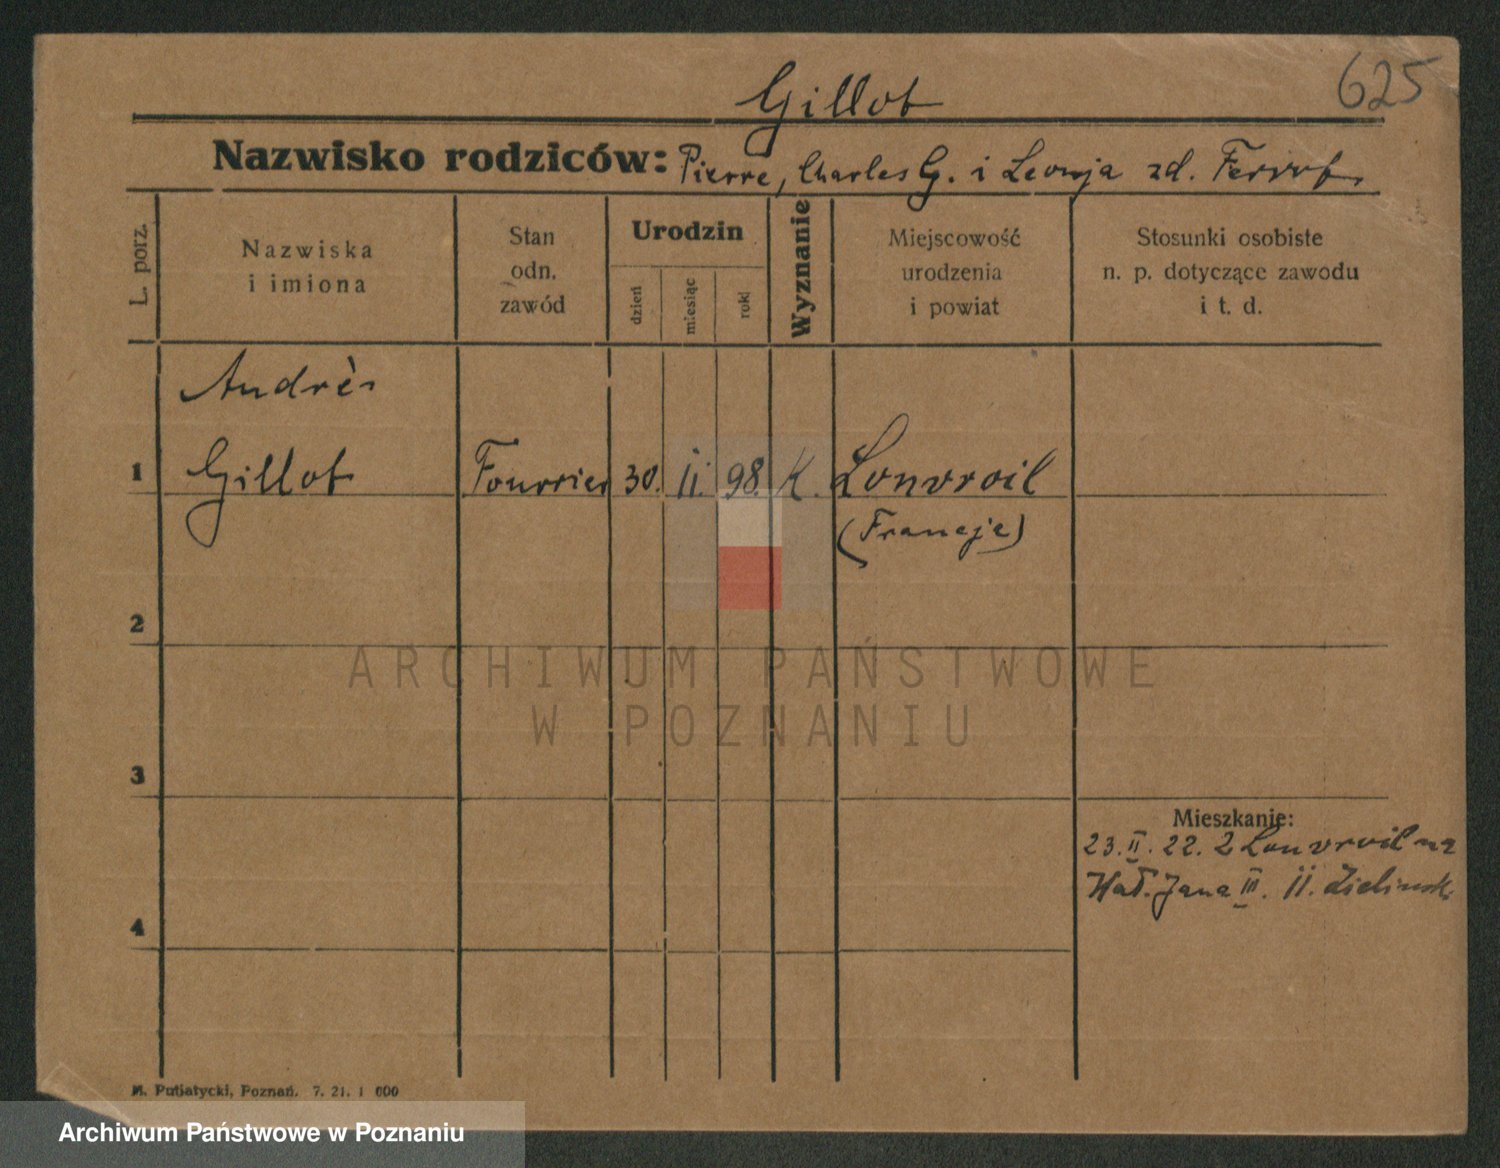 625
Gillot
Nazwisko rodziców: Pierre, Charles G. i Leonja zd.
L. porz.
Nazwiska i imiona
Stan odn. zawód
Urodzin
dzień
miesiąc
rok
Wyznanie
Miejscowość urodzenia i powiat
Stosunki osobiste n. p. dotyczące zawodu i t. d.
Andrè
1 Gillot Fourrier 30. II. 98. K. Louvroil
(Francje)
2
ARCHIWUM PAŃSTWOWE
W POZNANIU
3
Mieszkanie:
23. II. 22. z Louvroil na
Wał. Jana III. 11. Zielinsk.
4
M. Putiatycki, Poznań. 7. 21. 1 000
Archiwum Państwowe w Poznaniu